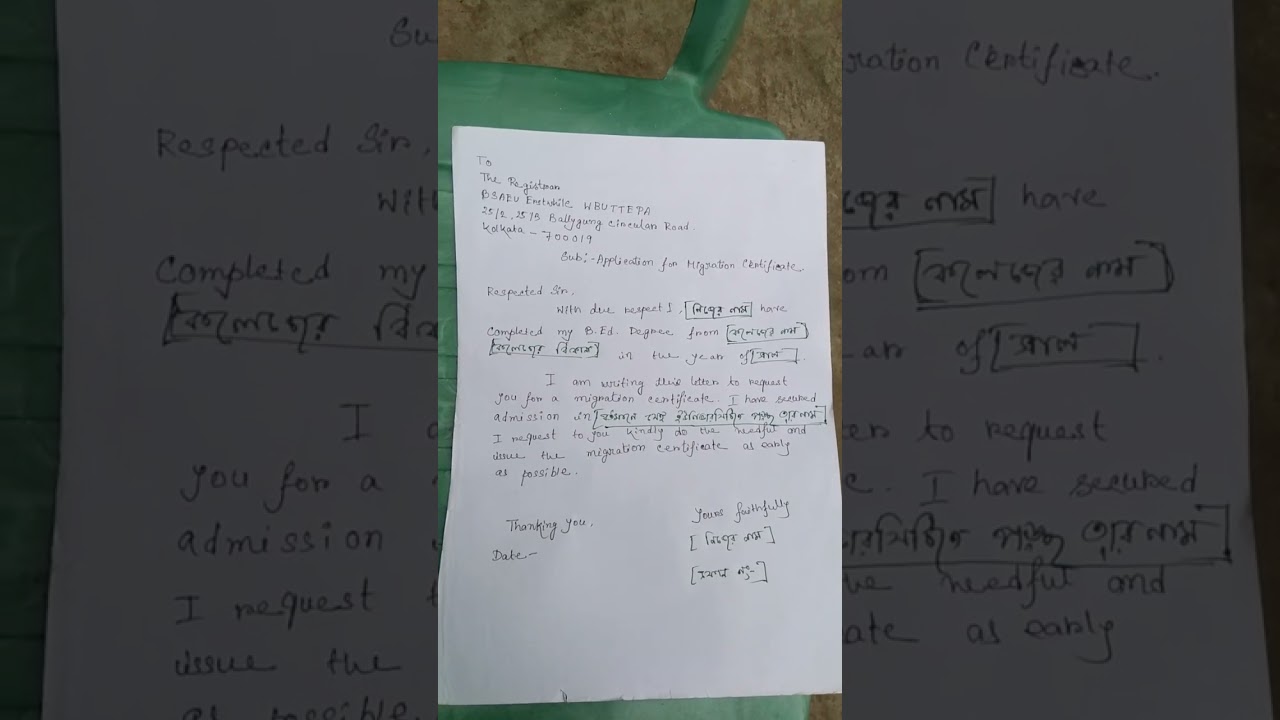 To
The Registrar
BSAEU Erstwhile WBUTTEPA
25/2, 25/3 Ballygung Circular Road.
Kolkata - 700019
Sub:- Application for Migration Certificate.
Respected Sir,
With due respect I, [নিজের নাম] have
Completed my B.Ed. Degree from [কলেজের নাম]
[কলেজের ঠিকানা] in the year of [সাল].
I am writing this letter to request
you for a migration certificate. I have secured
admission in [বর্তমানে যেই ইউনিভার্সিটিতে পড়ছ তার নাম]
I request to you kindly do the needful and
issue the migration certificate as early
as possible.
Thanking you,
Yours faithfully
Date-
[নিজের নাম]
[ফোন নং-]